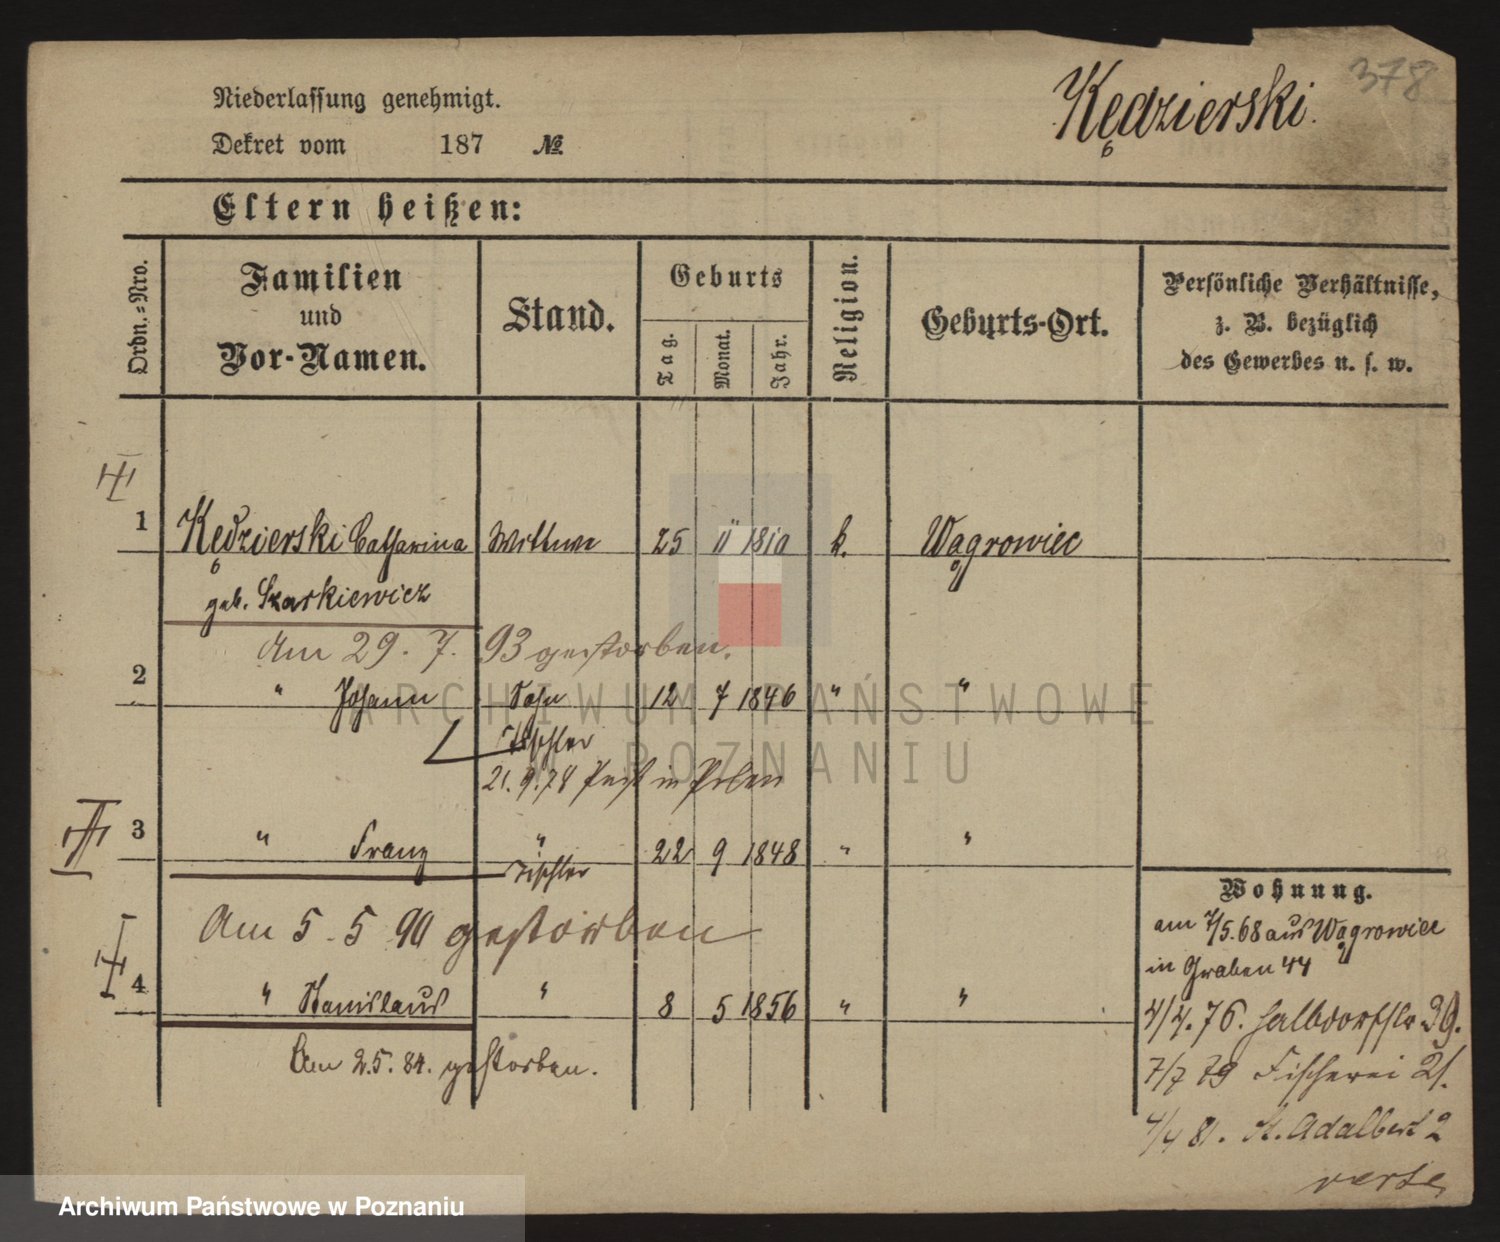 378
Kędzierski.
Niederlassung genehmigt.
Dekret vom 187 №
Eltern heißen:
Ordn.=Nro.
Familien
und
Vor-Namen.
Stand.
Geburts
Tag.
Monat.
Jahr.
Religion.
Geburts-Ort.
Persönliche Verhältnisse,
z. B. bezüglich
des Gewerbes u. s. w.
1 Kędzierski Catharina Wittwe 25 11 1810 k. Wągrowiec
geb. Szarkiewicz
Am 29. 7. 93 gestorben.
2 " Johann Sohn 12 7 1846 " "
Tischler
21.9.78 in Polen
3 " Franz " 22 9 1848 " "
Tischler
Am 5. 5. 90 gestorben
4 " Stanislaus " 8 5 1856 " "
Am 2.5. 84. gestorben.
Wohnung.
am 7/5.68 aus Wągrowiec
in Graben 44
4/4. 76. Halbdorfstr 39.
7/7 79 Fischerei 21.
4/4 81. St. Adalbert 2
verte
ARCHIWUM PAŃSTWOWE
W POZNANIU
Archiwum Państwowe w Poznaniu